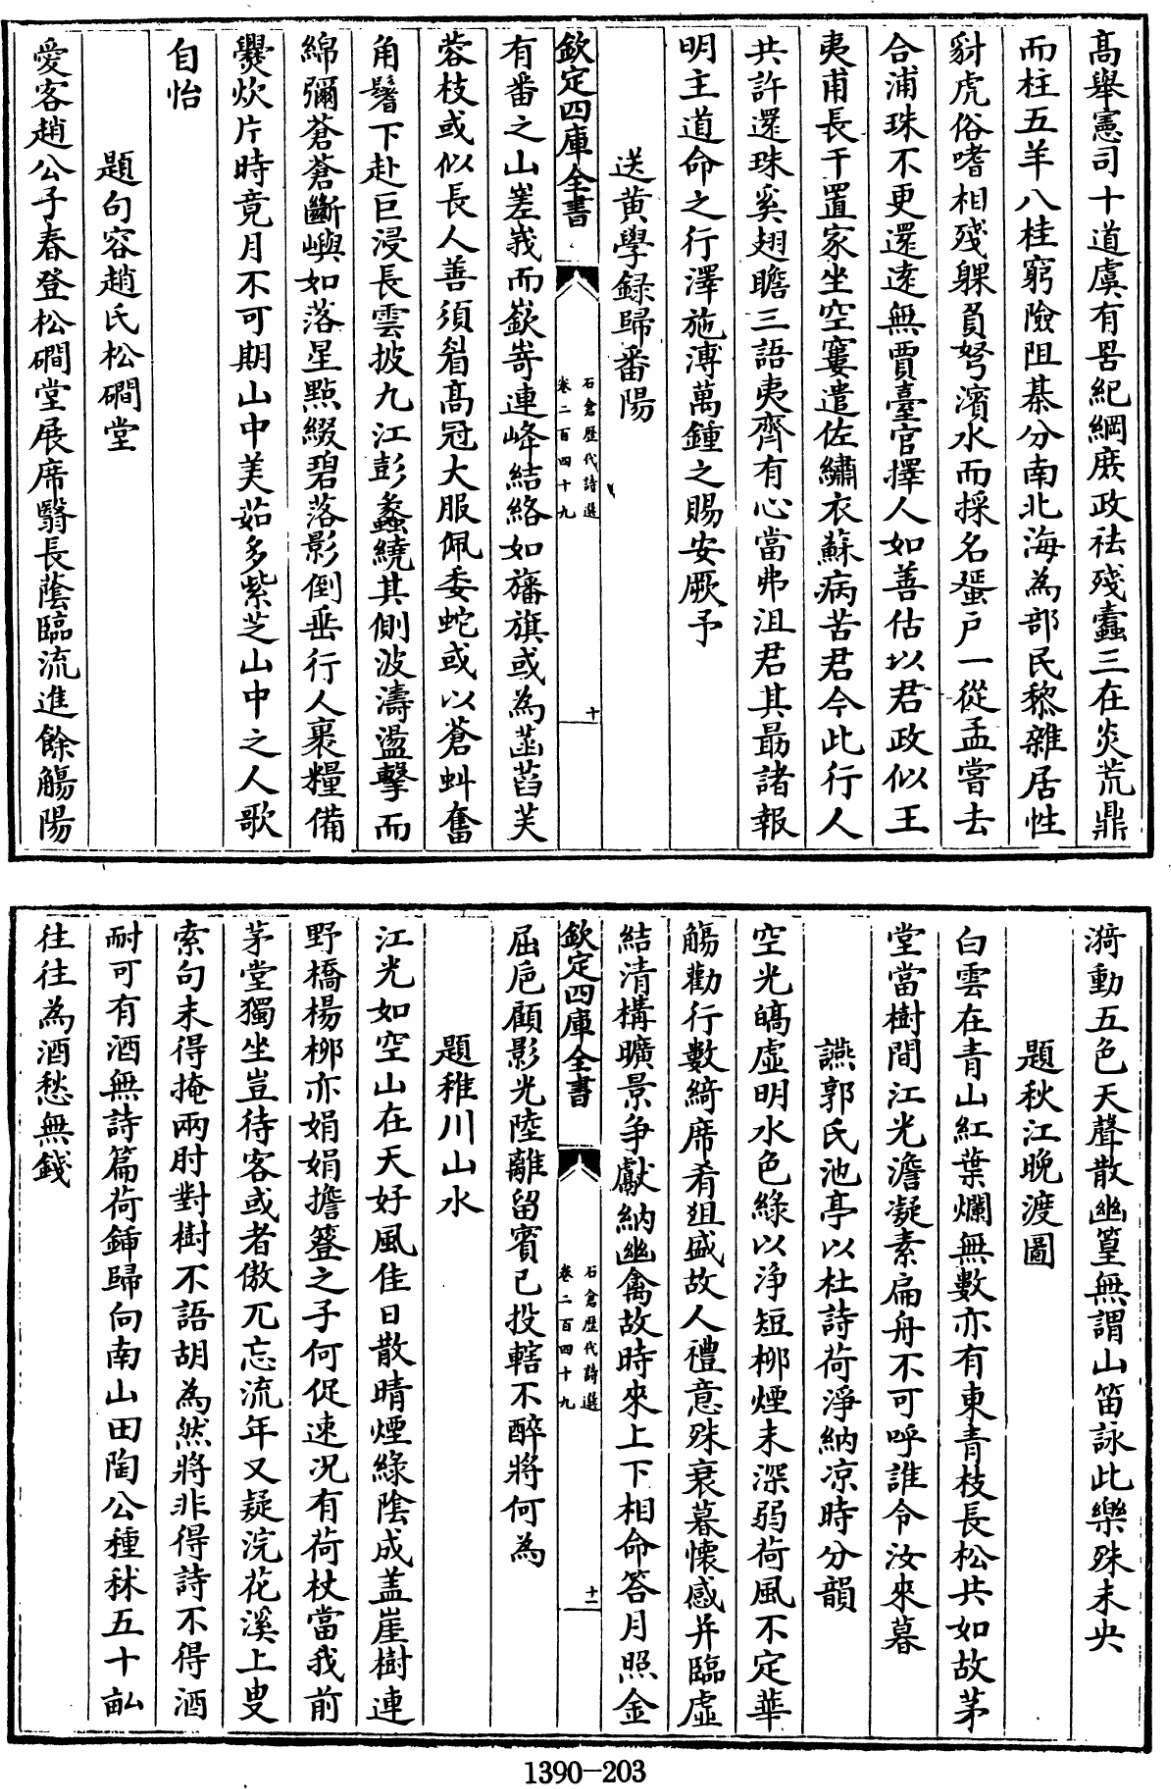 髙舉憲司十道虞有罟紀綱庶政祛殘蠹三在炎荒鼎
而柱五羊八桂窮險阻棊分南北海為部民黎雜居性
豺虎俗嗜相殘躶負弩濱水而採名蜑戸一從孟嘗去
合浦珠不更還逺無賈臺官擇人如善估以君政似王
夷甫長干置家坐空窶遣佐繡衣蘇病苦君今此行人
共許還珠奚翅瞻三語夷齊有心當弗沮君其勗諸報
明主道命之行澤施溥萬鍾之賜安厥予
送黄學録歸番陽
欽定四庫全書
石倉歴代詩選
卷二百四十九
十
有番之山嵳峩而嶔嵜連峰結絡如旛旗或為菡萏芙
蓉枝或似長人善須眉髙冠大服佩委蛇或以蒼虯奮
角鬐下赴巨浸長雲披九江彭蠡繞其側波濤盪擊而
綿彌蒼蒼斷嶼如落星㸃綴碧落影倒垂行人裹糧備
爨炊片時竟月不可期山中美茹多紫芝山中之人歌
自怡
題句容趙氏松磵堂
愛客趙公子春登松磵堂展席翳長蔭臨流進餘觴陽
漪動五色天聲散幽篁無謂山笛詠此樂殊未央
題秋江晚渡圖
白雲在青山紅葉爛無數亦有東青枝長松共如故茅
堂當樹間江光澹凝素扁舟不可呼誰令汝來暮
讌郭氏池亭以杜詩荷淨納凉時分韻
空光皜虚明水色緑以淨短栁煙未深弱荷風不定華
觴勸行數綺席肴俎盛故人禮意殊衰暮懷感并臨虚
結清構曠景争獻納幽禽故時來上下相命答月照金
欽定四庫全書
石倉歴代詩選
卷二百四十九
十一
屈巵顧影光陸離留賓已投轄不醉將何為
題稚川山水
江光如空山在天好風佳日散晴煙緑陰成盖崖樹連
野橋楊栁亦娟娟擔簦之子何促速况有荷杖當我前
茅堂獨坐豈待客或者傲兀忘流年又疑浣花溪上叟
索句未得掩兩肘對樹不語胡為然將非得詩不得酒
耐可有酒無詩篇荷鍤歸向南山田陶公種秫五十畝
往往為酒愁無錢
1390-203